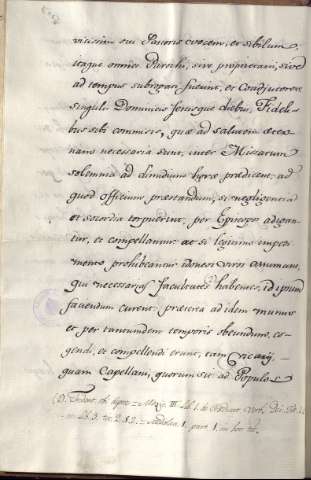 vicissim sui Pastoris vocem, et sibilum
itaque omnes Parochi, sive proprietarii, sive
ad tempus subrogari fuerint, et Coadjutores
singulis Dominicis festisque diebus, Fideli-
bus sibi commissis, quae ad salutem aeter-
nam necessaria sunt, inter Missarum
solemnia ad dimidium horae praedicent: ad
quod officium praestandum, si negligentia
et socordia torpuerint, per Episcopos adigan-
tur, et compellantur at si legitimo impedi-
mento prohibeantur idoneos viros assumant,
qui necessarias facultates habentes, id ipsum
faciendum curent; praeterea ad idem munus
et per tantundem temporis obeundum, co-
gendi, et compellendi erunt, tam Vicarij,
quam Capellani, quorum sit ad Populos